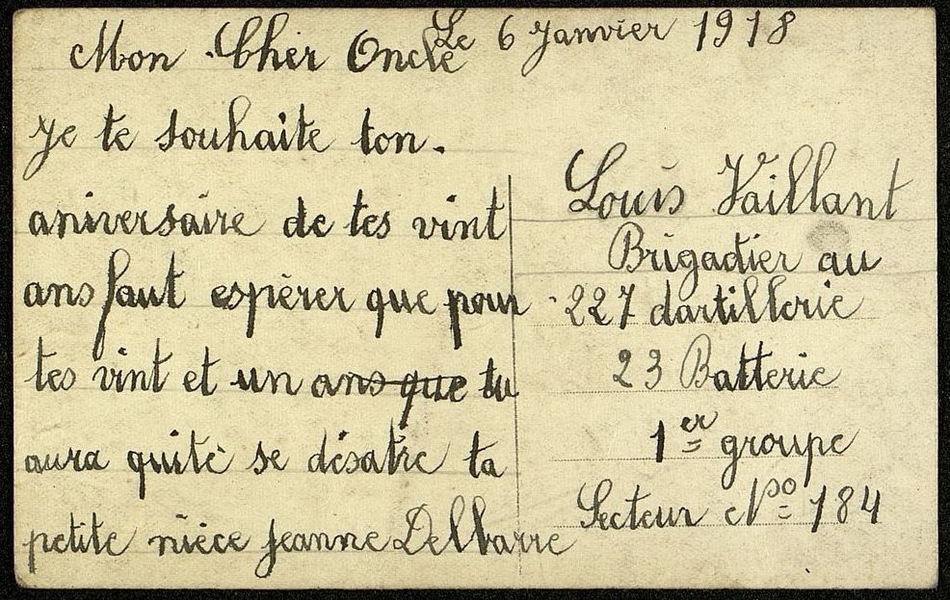 Le 6 Janvier 1918
Mon Cher Oncle
Je te souhaite ton.
aniversaire de tes vint
ans faut espèrer que pour
tes vint et un ans que tu
aura quité se désatre ta
petite nièce Jeanne Delbarre
Louis Vaillant
Brigadier au
227 dartillerie
23 Batterie
1er groupe
Secteur No 184